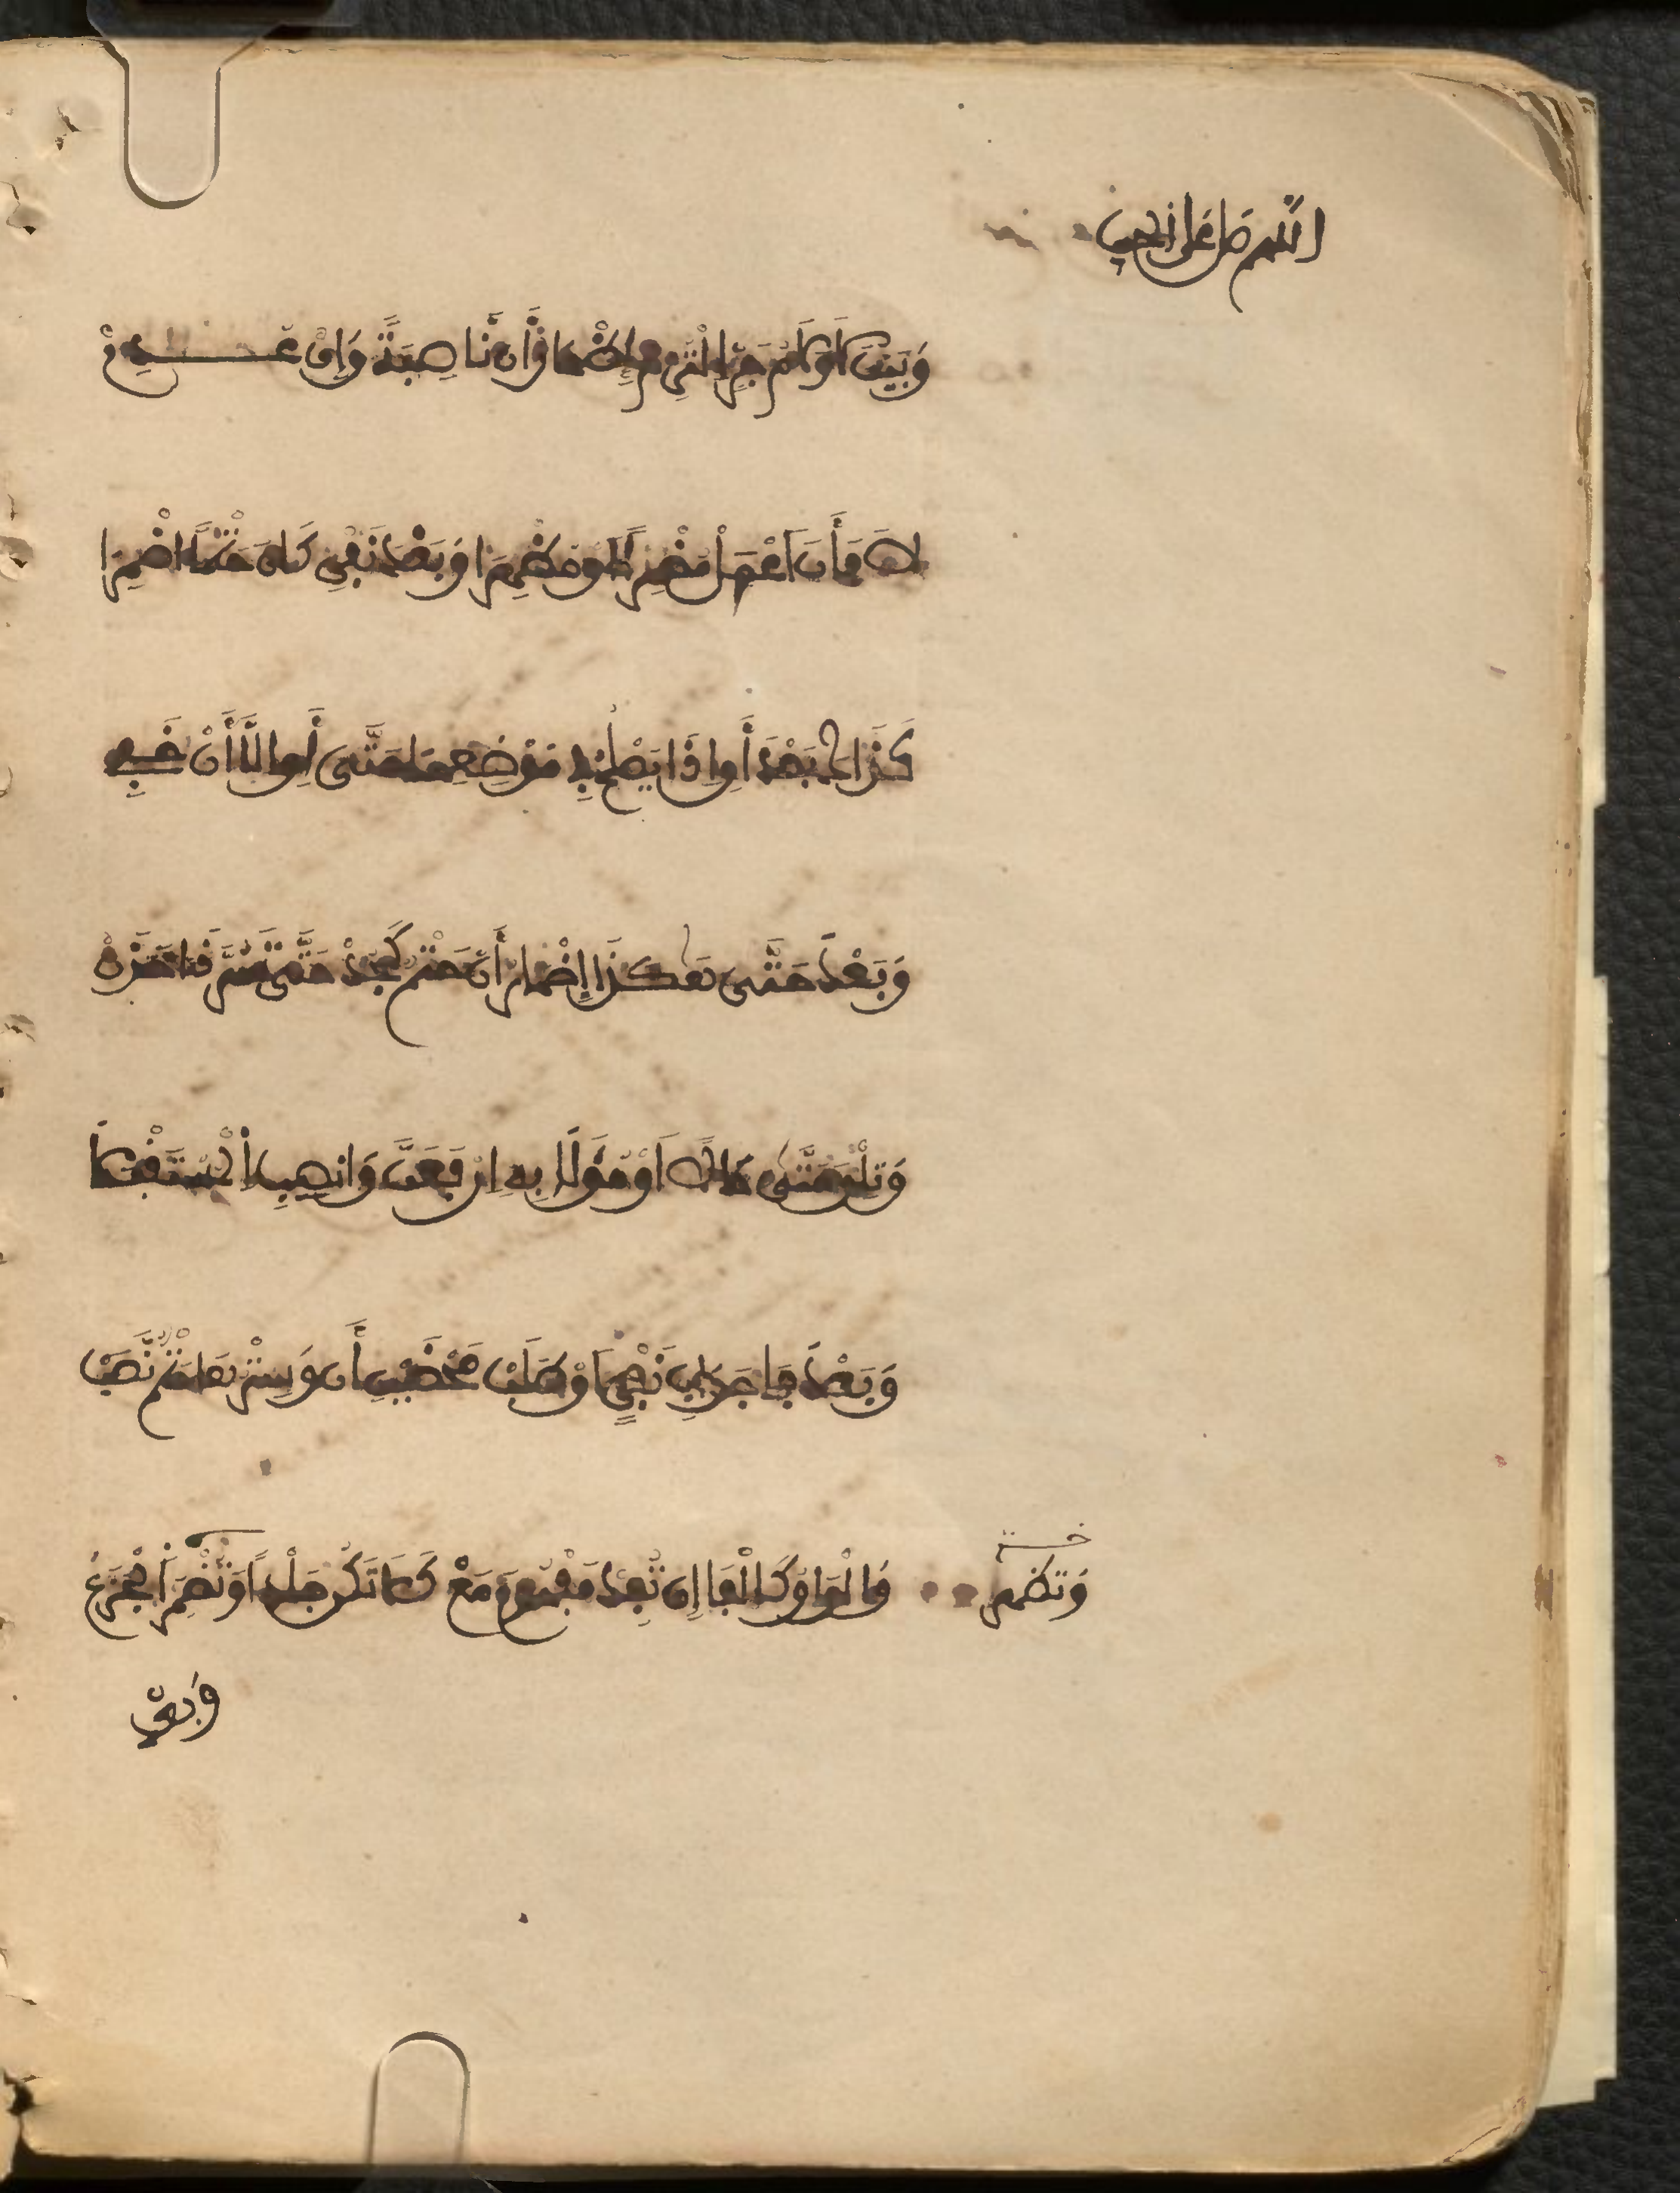 اللهم صل على الحبيب
وَبَيْنَ لَا وَلَامِ جَرٍّ الْتُزِمْ إِظْهَارُ أَنْ نَاصِبَةً وَإِنْ عُدِمْ
لَا فَأَنَ اعْمِلْ مُضْمِرًا أو مُظْهِرَا وَبَعْدَ نَفْيِ كَانَ حَتْمًا اضْمِرَا
كَذَاكَ بَعْدَ أَو إِذَا يَصْلُحُ فِي مَوْضِعِهَا حَتَّى أَوِ الَّا أَنْ خَفِي
وَبَعْدَ حَتَّى هَكَذَا إِضْمَارُ أَنْ حَتْمٌ كَجُدْ حَتَّى تَسُرَّ ذَا حَزَنْ
وَتِلْوَ حَتَّى حَالًا اَوْ مُؤَوَّلَا بِهِ ارْفَعَنَّ وَانْصِبِ الْمُسْتَقْبَلَا
وَبَعْدَ فَا جَوَابِ نَفْيٍ اَوْ طَلَبْ مَحْضَيْنِ أَنْ وَسِتْرُهَا حَتْمٌ نَصَبْ
وَالْوَاوُ كَالْفَا إِنْ تُفِدْ مَفْهُومَ مَعْ كَلَا تَكُنْ جَلْدًا وَتُظْهِرَ الْجَزَعْ
وَتظهر خـــة
وَبعد